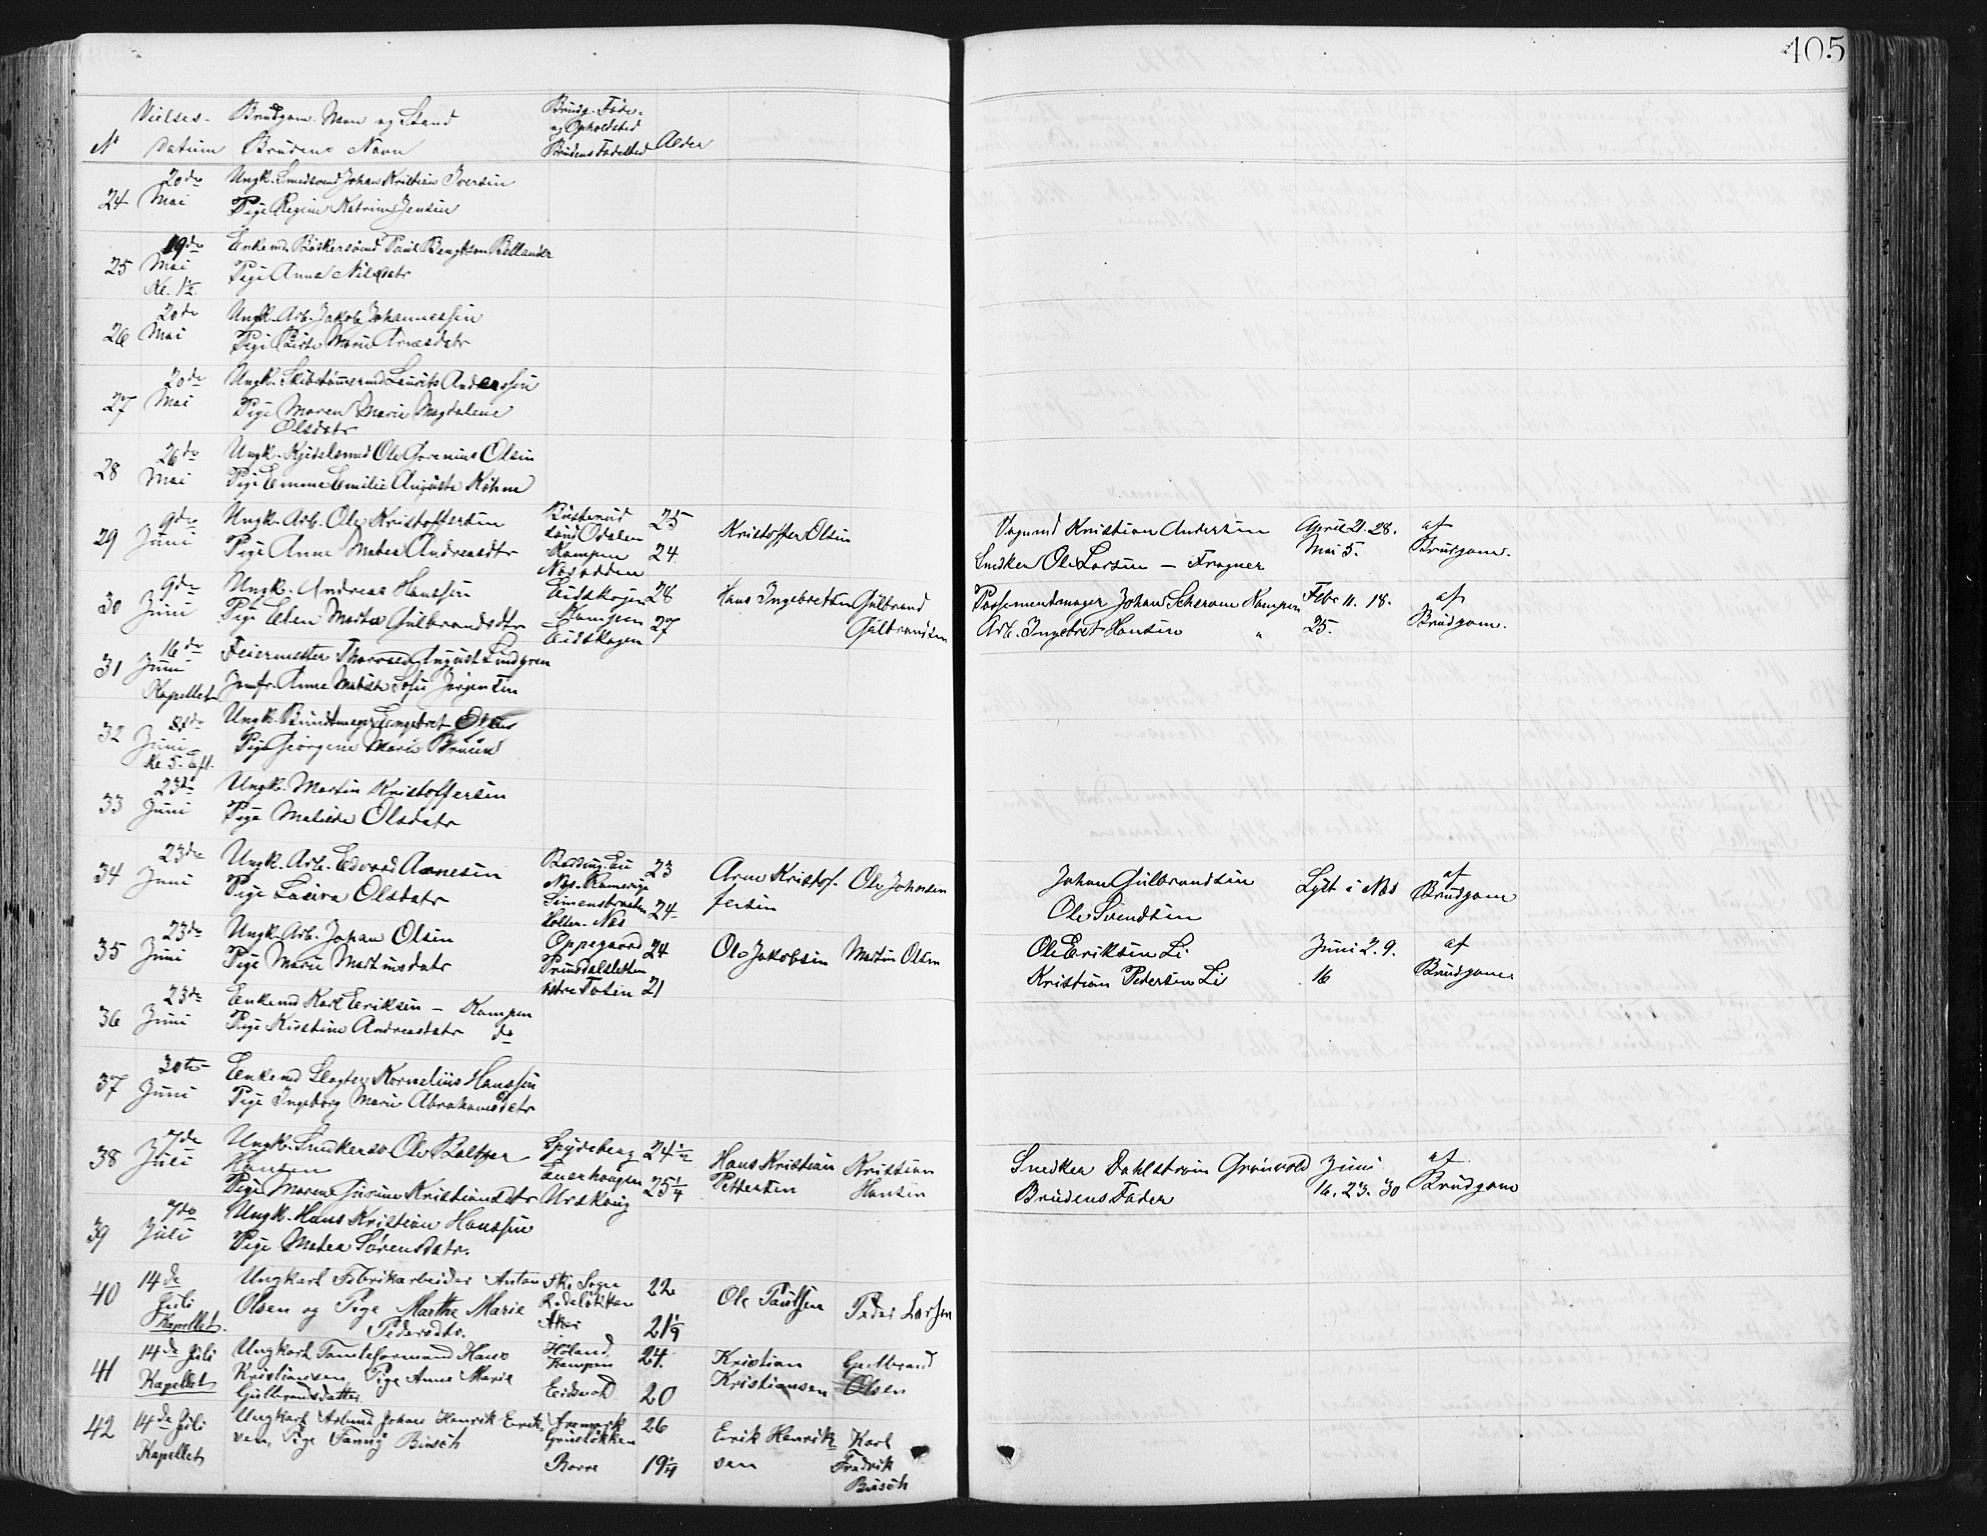 405
Vielses-
Brudgom. Navn og Stand
Brudg. Føde-
og Opholdsted
Nº
Datum
Brudens Navn
Brudens Fødested
Alder
24
20de
Mai
Ungk. Smedsvend Johan Kristian Iversen
Pige Regine Katrine Jensen
25
19de
Mai
Kl. 1½
Enkemd. Bødkersvend Paul Bengtson Bellander
Pige Anna Nilsdatr
26
20de
Mai
Ungk. Arb. Jakob Johannessen
Pige Marie Arnesdatr
27
20de
Mai
Ungk. Skibstømmermd Laurits Anderssen
Pige Maren Marie Magdalene
Olsdatr
28
26de
Mai
Ungk. Kjedelsmed Ole Olsen
Pige Emma Emilie Auguste Køhne
29
9de
Juni
Ungk. Arb. Ole Kristoffersen
Pige Anne Matea Andreasdtr
Odalen
Kampen
Næsodden
25
24
Kristoffer Olsen
Vognmd Kristian Andersen
Snedker Ole Larsen — Frogner
April 21. 28.
Mai 5.
af
Brudgom.
30
9de
Juni
Ungk. Andreas Hanssen
Pige Elen Martea Gulbrandsdtr
Eidskogen
Kampen
Eidskogen
28
27
Hans Ingebretsen
Gulbrand
Gulbrandsen
Possementmager Johan Kampen
Arb. Ingebret Hansen "
Febr 11. 18.
25.
af
Brudgom.
31
16de
Juni
Kapellet
Feiermester Thorvald August Lindgren
Jomfr. Anne Sofie Jørgensen
32
Juni
Kl. 5. Eft.
Ungk. Bundtmager Engebret Olsen
Pige Georgine Marie Bruun
33
23de
Juni
Ungk. Martin Kristoffersen
Pige Matilde Olsdatr
34
23de
Juni
Ungk. Arb. Edvard Arnesen
Pige Lovisa Olsdatr
Næs. Romerige
Simensbraaten
Holter. Næs
23
24
Arne Kristof-
fersen
Ole Johnsen
Johan Gulbrandsen
Ole Svendsen
Lyst i Næs
af
Brudgom
35
23de
Juni
Ungk. Arb. Johan Olsen
Pige Marie Martinsdatr
Oppegaard
Prinsdalsletten
østre Toten
24
21
Ole Jakobsen
Martin Olsen
Ole Eriksen Li
Kristian Pedersen Li
Juni 2. 9.
16
af
Brudgom
36
23de
Juni
Enkemd Karl Eriksen — Kampen
Pige Kristine Andreasdatr do
37
30te
Juni
Enkemd Slagter Kornelius Hanssen
Pige Ingeborg Marie Abrahamsdatr
38
7de
Juli
Ungk. Snedkersv. Ole Baltser
Hansen
Pige Maren Gurine Kristiansdatr
Spydeberg
Enerhaugen
Urskoug
24½
25¼
Hans Kristian
Pettersen
Kristian
Hansen
Snedker Dahlstrøm Grønvold
Brudens Fader
Juni
16. 23. 30
af
Brudgom
39
7de
Juli
Ungk. Hans Kristian Hanssen
Pige Matea Sørensdatr.
40
14de
Juli
Kapellet.
Ungkarl Fabrikarbeider Anton
Olsen og Pige Marthe Marie
Pedersdtr.
Ski Sogn
Rodeløkken
Aker
22
Ole Paulsen
Peder Larsen
41
14de Juli
Kapellet
Ungkarl Tomteformand Hans
Kristiansen, Pige Anne Marie
Gulbrandsdatter
Høland
Kampen
Eidsvold
24.
20
Kristian
Kristiansen
Gulbrand
Olsen
42
14de Juli
Kapellet
Ungkarl Arbmd Johan Henrik Erik-
sen, Pige Fanny Büsch
Aremark
Grünløkken
Borre
26
19¼
Erik Henrik-
sen
Karl
Fredrik
Büsch